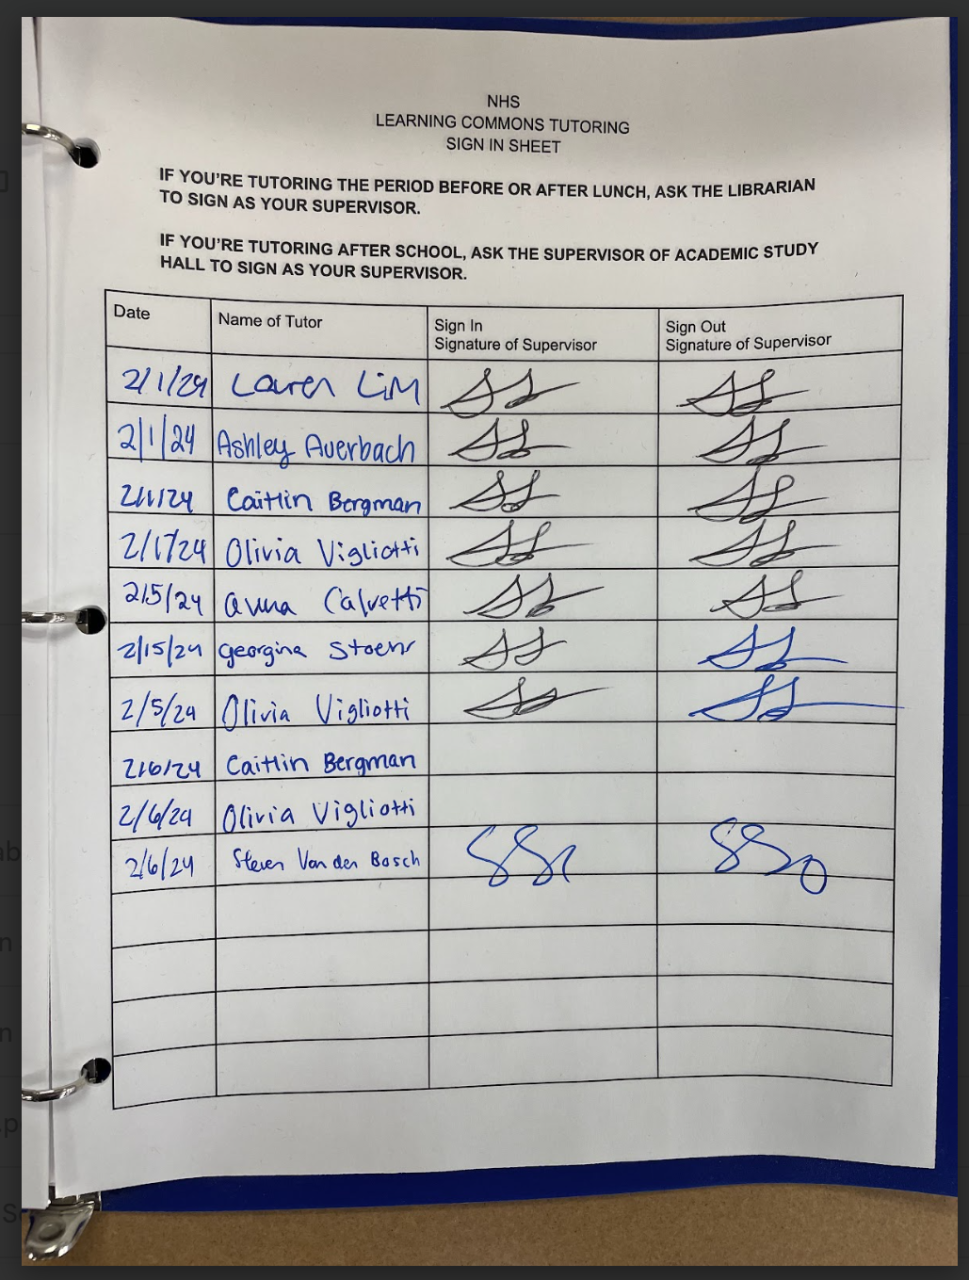 NHS
LEARNING COMMONS TUTORING
SIGN IN SHEET
IF YOU'RE TUTORING THE PERIOD BEFORE OR AFTER LUNCH, ASK THE LIBRARIAN
TO SIGN AS YOUR SUPERVISOR.
IF YOU'RE TUTORING AFTER SCHOOL, ASK THE SUPERVISOR OF ACADEMIC STUDY
HALL TO SIGN AS YOUR SUPERVISOR.
Date Name of Tutor Sign In Sign Out
Signature of Supervisor Signature of Supervisor
2/1/24 Lauren Lim
2/1/24 Ashley Auerbach
2/1/24 Caitlin Bergman
2/1/24 Olivia Vigliotti
2/5/24 Anna Calvetti
2/15/24 Georgina Stoehr
2/5/24 Olivia Vigliotti
2/6/24 Caitlin Bergman
2/6/24 Olivia Vigliotti
2/6/24 Steven Van den Bosch